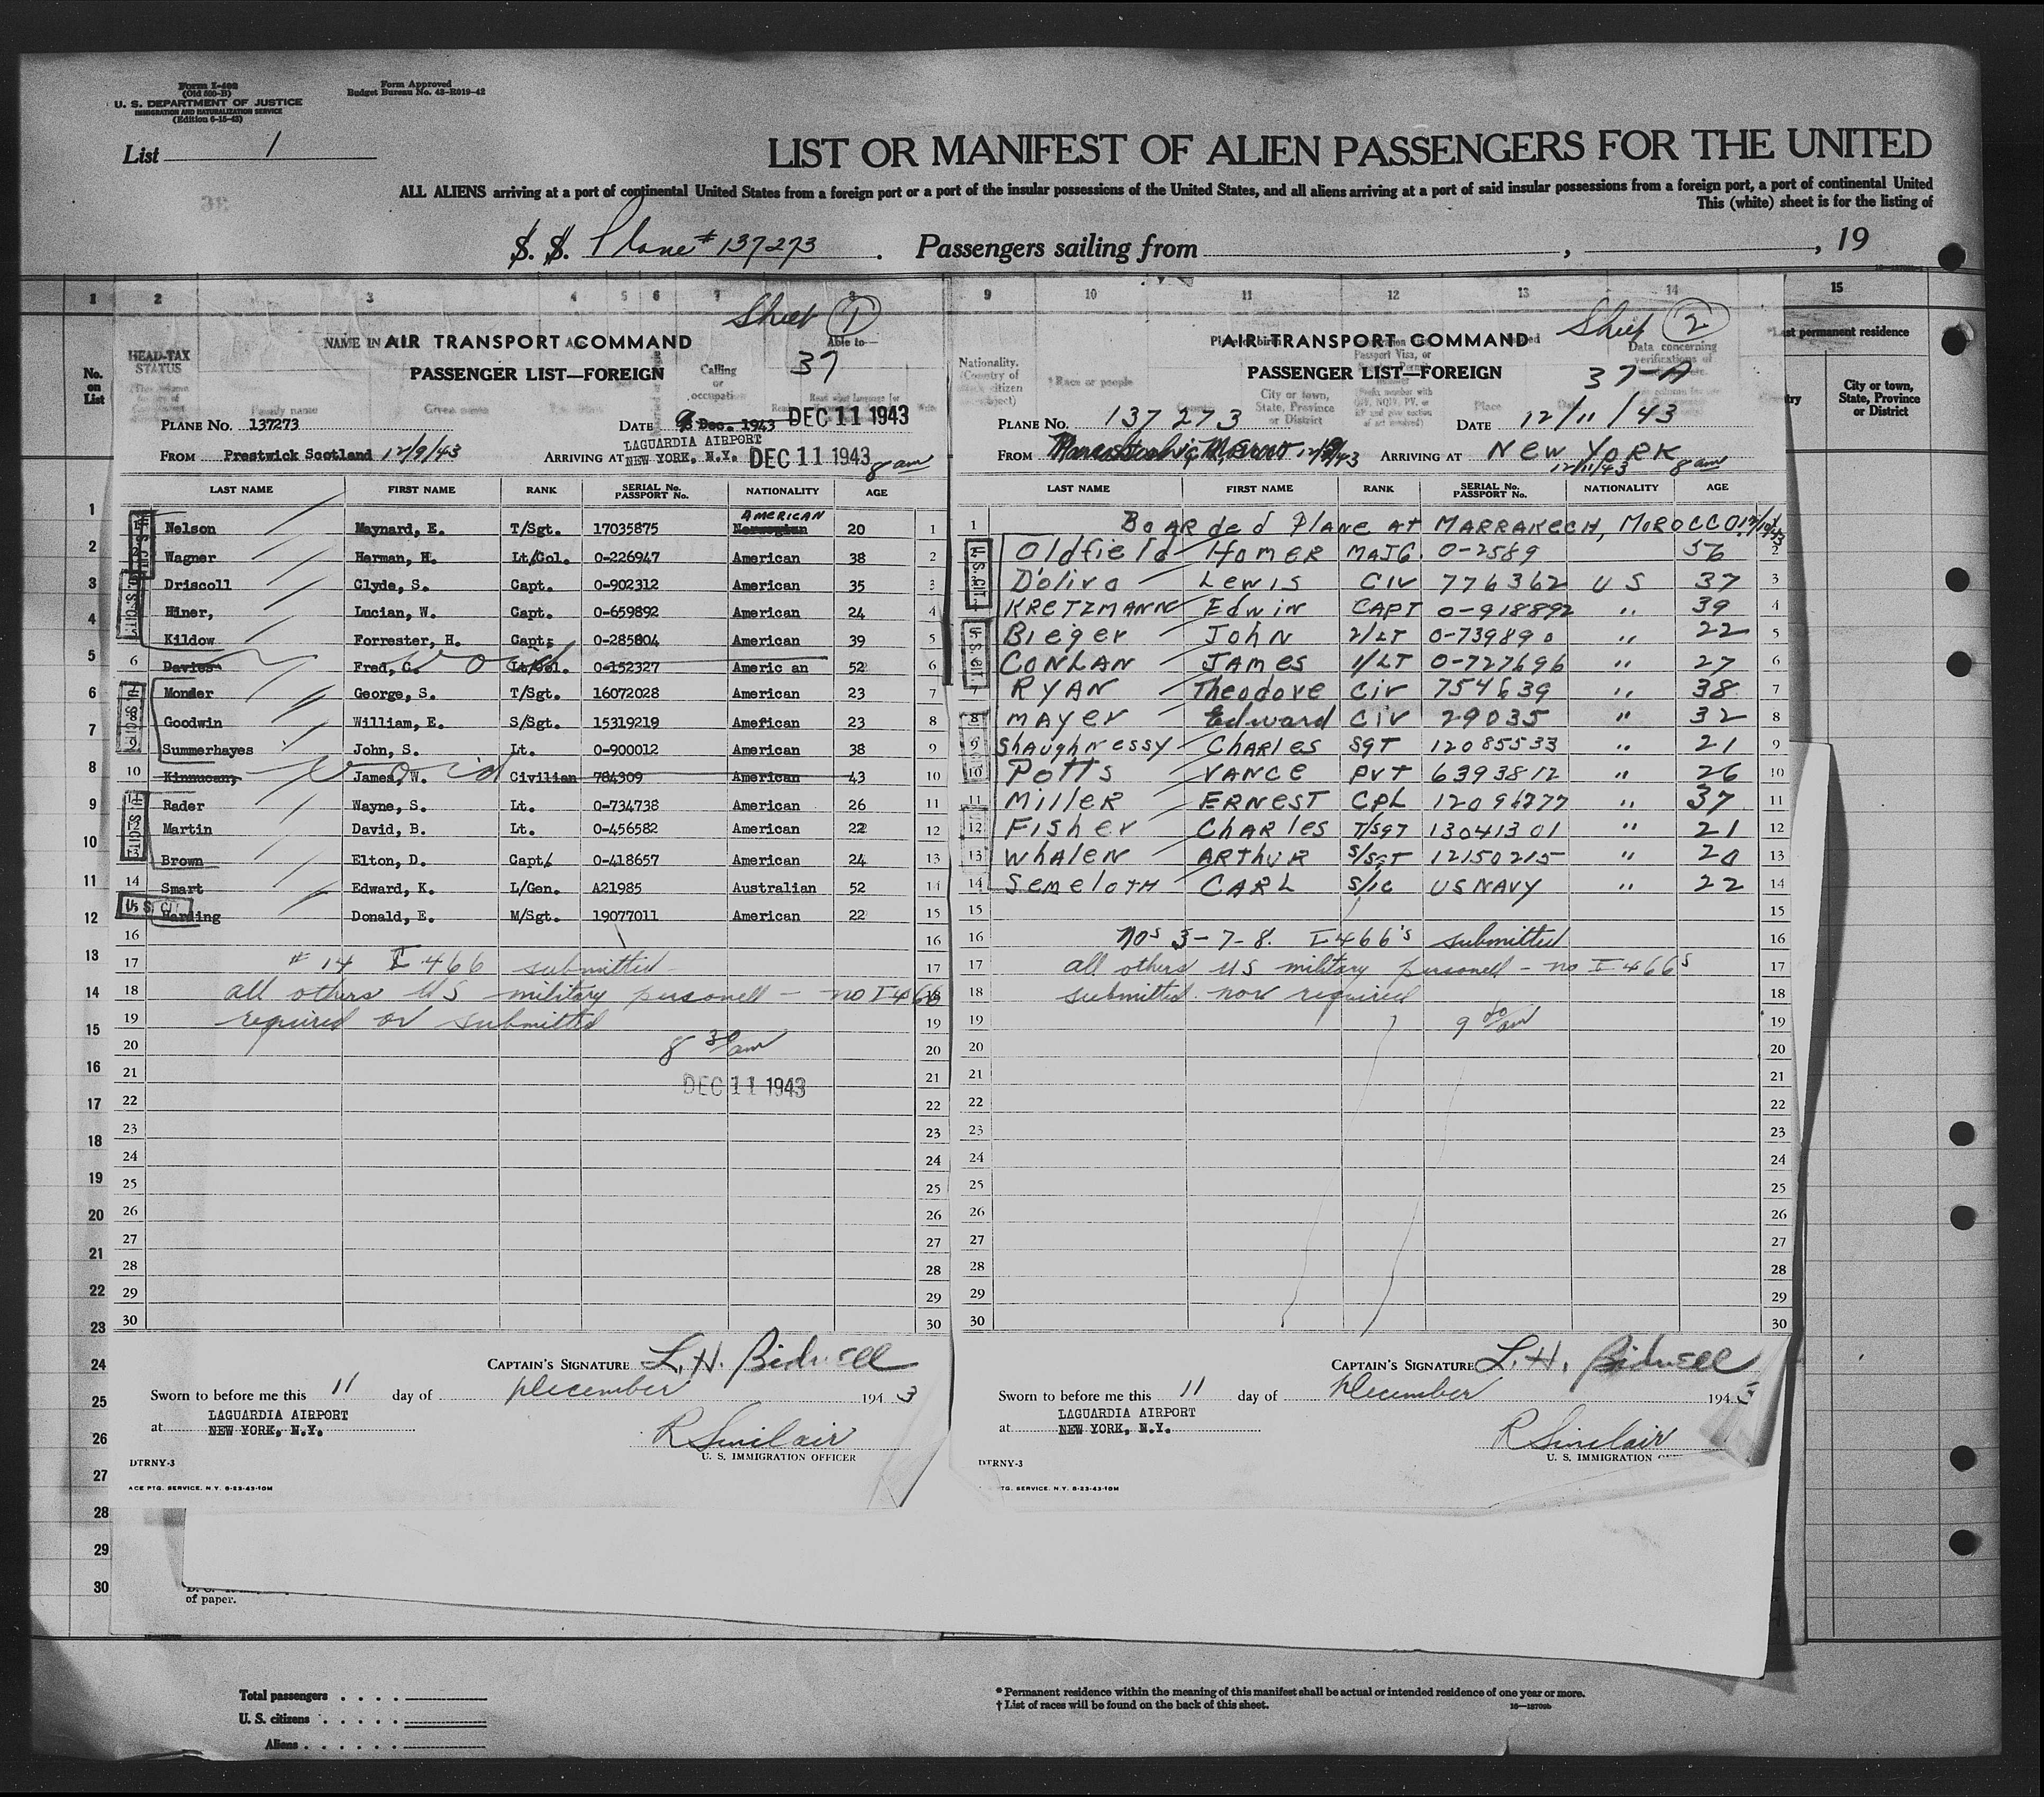 Form I-402
(Old 500-B)
U. S. DEPARTMENT OF JUSTICE
IMMIGRATION AND NATURALIZATION SERVICE
(Edition 6-15-43)
Form Approved
Budget Bureau No. 43-R019-42
List 1
LIST OR MANIFEST OF ALIEN PASSENGERS FOR THE UNITED
ALL ALIENS arriving at a port of continental United States from a foreign port or a port of the insular possessions of the United States, and all aliens arriving at a port of said insular possessions from a foreign port, a port of continental United
This (white) sheet is for the listing of
S. S. Plane # 137273 . Passengers sailing from , , 19
1 2 3 4 5 6 7 8 9 10 11 12 13 14 15
No. on List
HEAD-TAX STATUS
Sheet 1
AIR TRANSPORT COMMAND
37
PASSENGER LIST—FOREIGN
PLANE NO. 137273 DATE 9 Dec. 1943 DEC 11 1943
FROM Prestwick Scotland 12/9/43 ARRIVING AT LAGUARDIA AIRPORT NEW YORK, N.Y. DEC 11 1943 8 am
LAST NAME FIRST NAME RANK SERIAL No. PASSPORT No. NATIONALITY AGE
1 Nelson Maynard, E. T/Sgt. 17035875 Norwegian AMERICAN 20 1
Wagner Herman, H. Lt/Col. 0-226947 American 38 2
Driscoll Clyde, S. Capt. 0-902312 American 35 3
Hiner, Lucian, W. Capt. 0-659892 American 24 4
Kildow Forrester, H. Capt. 0-285804 American 39 5
6 Davies Fred, C. Lt/Col. 0-152327 Americ an 52 6
void
Monder George, S. T/Sgt. 16072028 American 23 7
Goodwin William, E. S/Sgt. 15319219 American 23 8
9 Summerhayes John, S. Lt. 0-900012 American 38 9
10 Kinnucan, James, W. Civilian 784309 American 43 10
void
11 Rader Wayne, S. Lt. 0-734738 American 26 11
Martin David, B. Lt. 0-456582 American 22 12
13 Brown Elton, D. Capt. 0-418657 American 24 13
14 Smart Edward, K. L/Gen. A21985 Australian 52 14
U. S. CIT. Harding Donald, E. M/Sgt. 19077011 American 22 15
16 16
17 # 14 I 466 submitted 17
18 all others US military personell - no I 466 18
19 required or submitted 19
20 8 30 am 20
21 DEC 11 1943 21
22 22
23 23
24 24
25 25
26 26
27 27
28 28
29 29
30 30
CAPTAIN'S SIGNATURE L. H. Bidwell
Sworn to before me this 11 day of December 1943
at LAGUARDIA AIRPORT NEW YORK, N.Y.
R Sinclair
U. S. IMMIGRATION OFFICER
DTRNY-3
ACE PTG. SERVICE, N.Y. 8-23-43-10M
Sheet 2
AIR TRANSPORT COMMAND
37-A
PASSENGER LIST—FOREIGN
PLANE NO. 137273 DATE 12/11/43
FROM ARRIVING AT NEW YORK
12/11/43 8 am
LAST NAME FIRST NAME RANK SERIAL No. PASSPORT No. NATIONALITY AGE
1 BOARDED PLANE AT MARRAKECH, MOROCCO
Oldfield HOMER MAJG. 0-2589 56 2
D'olivo LEWIS CIV 776362 US 37 3
KRETZMANN Edwin CAPT 0-918892 " 39 4
Bieger JOHN 2/LT 0-739890 " 22 5
CONLAN JAMES 1/LT 0-727696 " 27 6
7 RYAN Theodore CIV 754639 " 38 7
8 MAYER Edward CIV 29035 " 32 8
9 SHAUGHNESSY CHARLES SGT 12085533 " 21 9
10 POTTS VANCE PVT 6393812 " 26 10
11 MILLER ERNEST CPL 12096777 " 37 11
12 FISHER CHARLES T/SGT 13041301 " 21 12
13 WHALEN ARTHUR S/SGT 12150215 " 20 13
14 SEMELOTH CARL S/1C US NAVY " 22 14
15 15
16 Nos 3-7-8. I-466's submitted 16
17 all others US military personell - no I 466s 17
18 submitted nor required 18
19 9 am 19
20 20
21 21
22 22
23 23
24 24
25 25
26 26
27 27
28 28
29 29
30 30
CAPTAIN'S SIGNATURE L. H. Bidwell
Sworn to before me this 11 day of December 1943
at LAGUARDIA AIRPORT NEW YORK, N.Y.
R Sinclair
U. S. IMMIGRATION
DTRNY-3
TG. SERVICE, N.Y. 8-23-43-10M
Last permanent residence
City or town, State, Province or District
of paper.
Total passengers
U. S. citizens
Aliens
* Permanent residence within the meaning of this manifest shall be actual or intended residence of one year or more.
† List of races will be found on the back of this sheet.